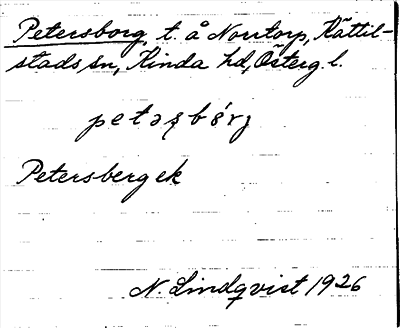 Petersborg, t. å Norrtorp, Kättil-
stads sn, Kinda hd, Österg l.
Petersberg ek
N. Lindqvist 1926